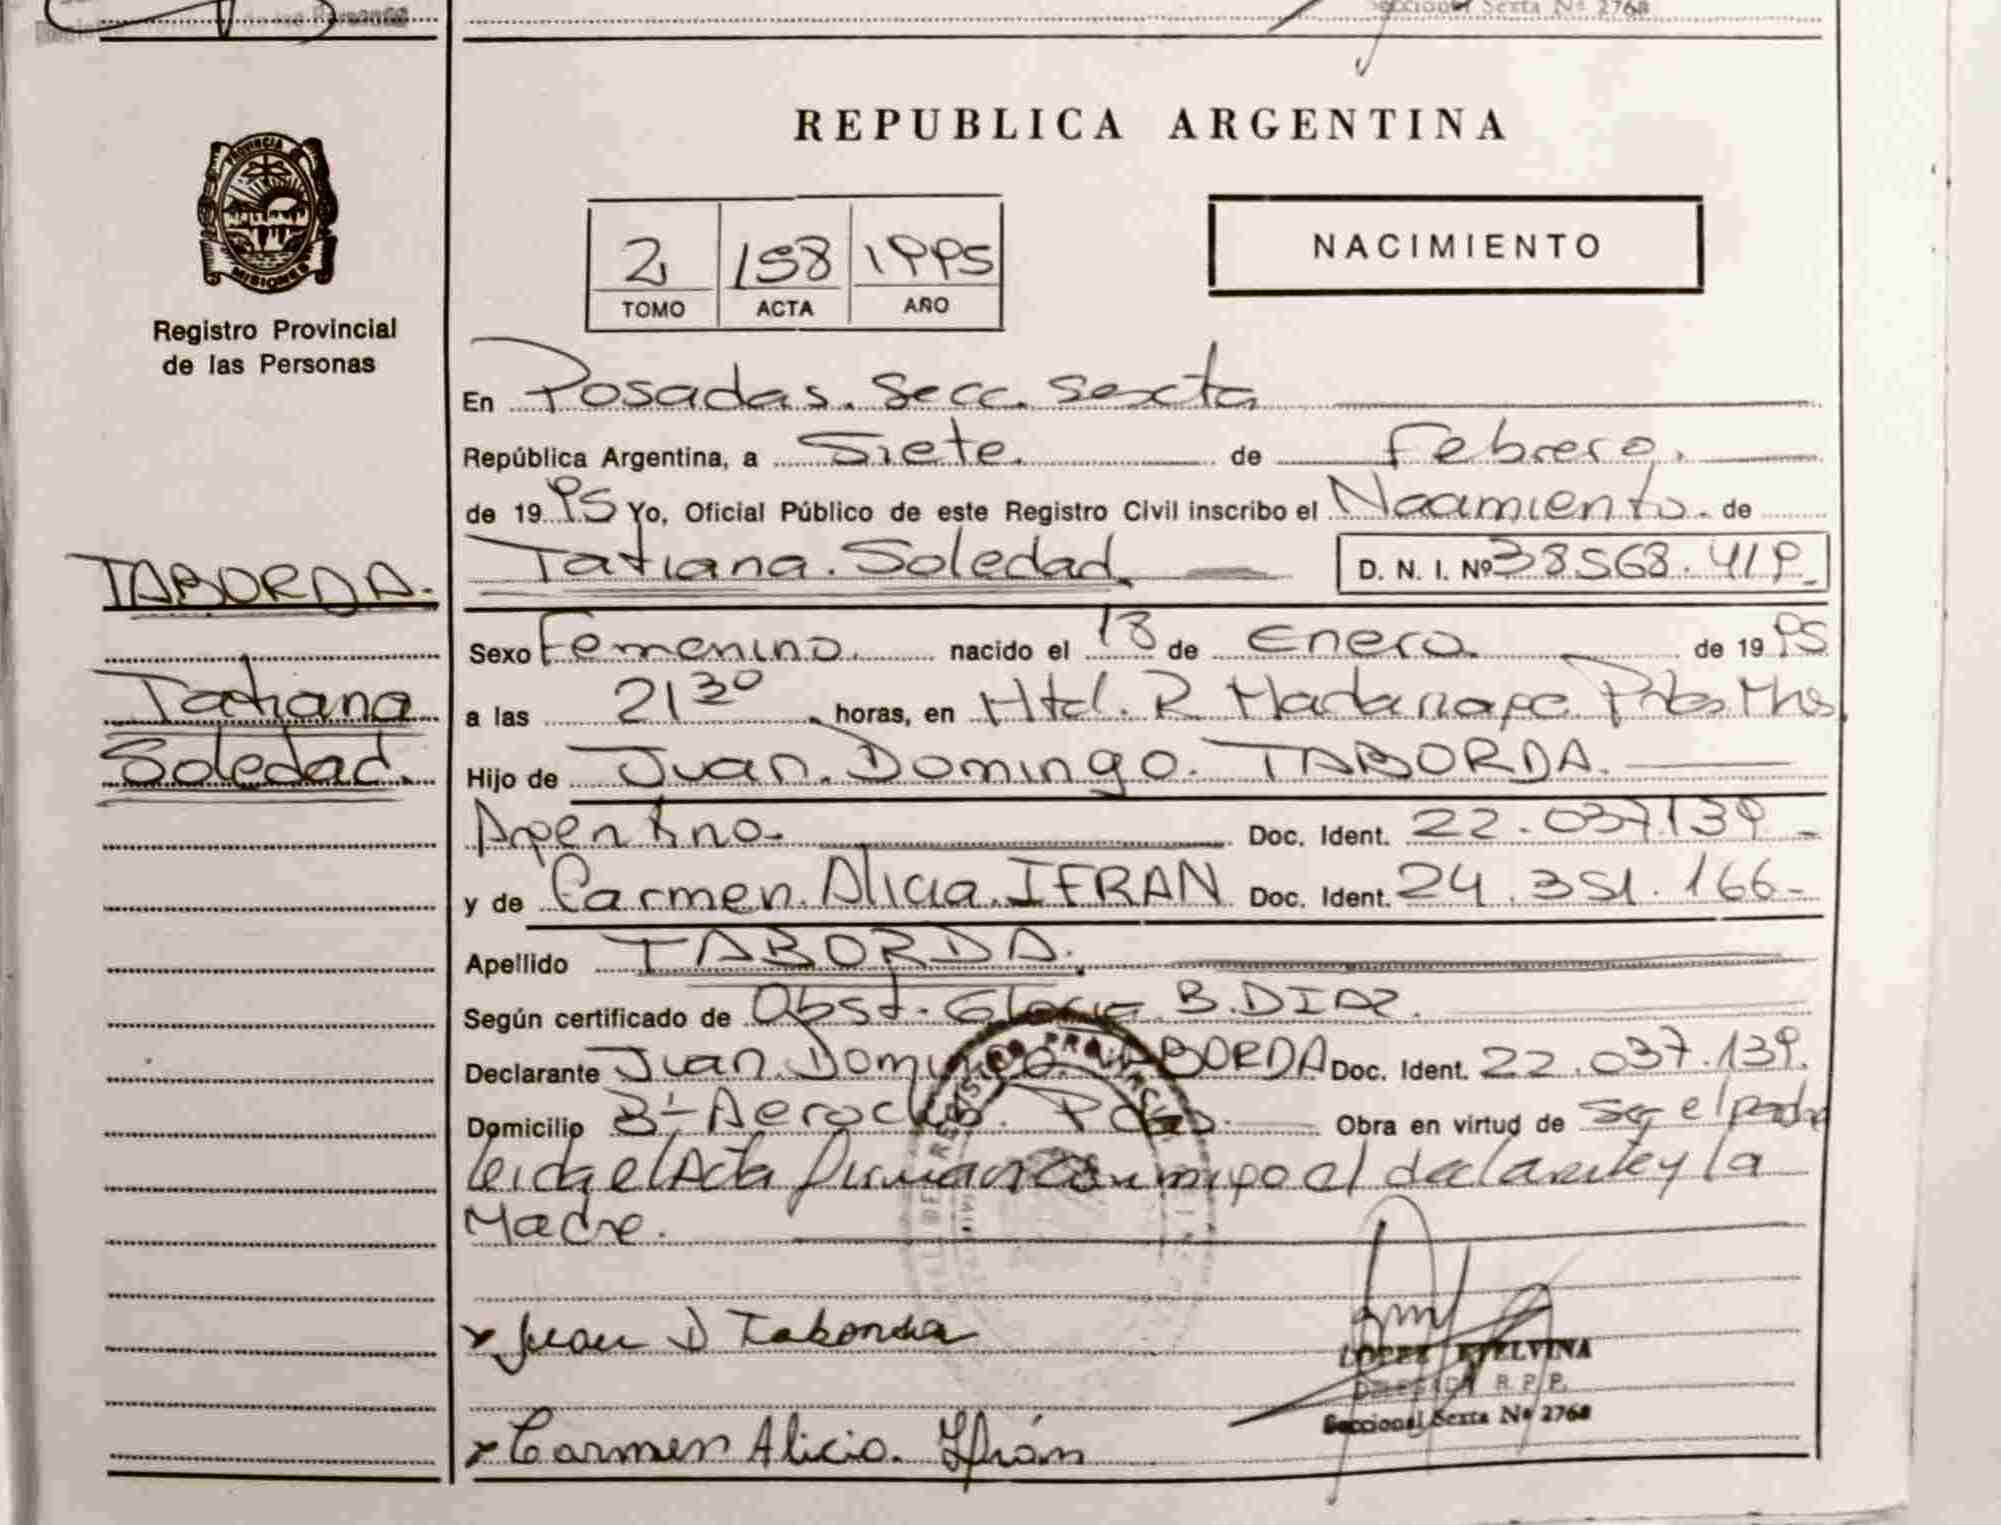 Seccional Sexta Nº 2768
REPUBLICA ARGENTINA
PROVINCIA DE
MISIONES
Registro Provincial
de las Personas
2 158 1995
TOMO ACTA AÑO
NACIMIENTO
En Posadas. Secc. Sexta
República Argentina, a Siete. de Febrero.
de 1995 Yo, Oficial Público de este Registro Civil inscribo el Nacimiento. de
TABORDA.
Tatiana. Soledad. D. N. I. Nº 38568.419
Sexo Femenino. nacido el 18 de Enero. de 1995
Tatiana
Soledad.
a las 21 30 horas, en Htal. R Madariaga
Hijo de Juan. Domingo. TABORDA.
Argentino. Doc. Ident. 22.037.139
y de Carmen. Alicia. IFRAN Doc. Ident. 24.351.166-
Apellido TABORDA.
Según certificado de Obst. Gloria B. DIAZ.
Declarante Juan. Domingo. TABORDA Doc. Ident. 22.037.139.
Domicilio Bº Aeroclub. Pdas. Obra en virtud de ser el padre
leida el Acta firman conmigo el declarante y la
Madre.
Juan D Taborda
LOPEZ ETELVINA
DELEGADA R. P. P.
Seccional Sexta Nº 2768
Carmen Alicia. Ifrán